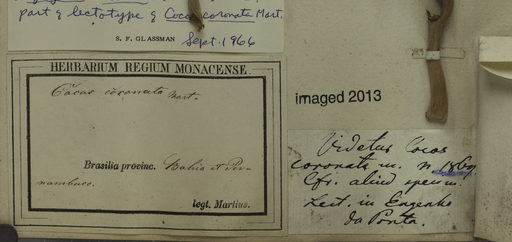 part of lectotype of Cocos coronata Mart.
S. F. GLASSMAN Sept. 1966
HERBARIUM REGIUM MONACENSE.
Cocos coronata Mart.
Brasilia provinc. Bahia et Per-
nambuco.
legt. Martius.
imaged 2013
Videtur Cocos
coronata m. n.
Cfr. aliud specim.
Lect. in Engenho
da Ponta.